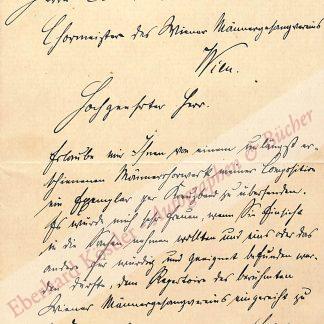 Herrn
Chormeister des Wiener Männergesangvereins
Wien.
Hochgeehrter Herr.
Erlaube mir Ihnen von einem unlängst er-
schienenen Männerchorwerk meiner Composition
ein Exemplar per Kreuzband zu übersenden.
Es würde mich sehr freuen wenn Sie Einsicht
in die Sache nehmen wollten und eins oder das
andere für würdig und geeignet befunden wer-
den dürfte, dem Repertoire des berühmten
Wiener Männergesangvereins eingereiht zu
Eberhard Köstler Autographen & Bücher